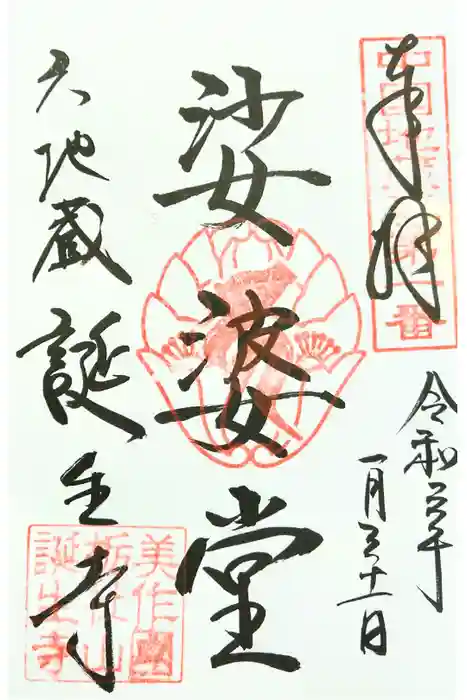 奉拝
令和三年
一月三十一日
娑婆堂
六地蔵
誕生寺
美作國
栃社山
誕生寺